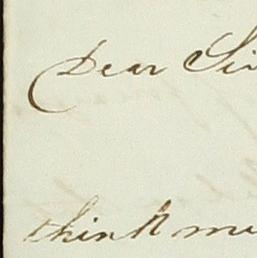 Dear Sir
think me